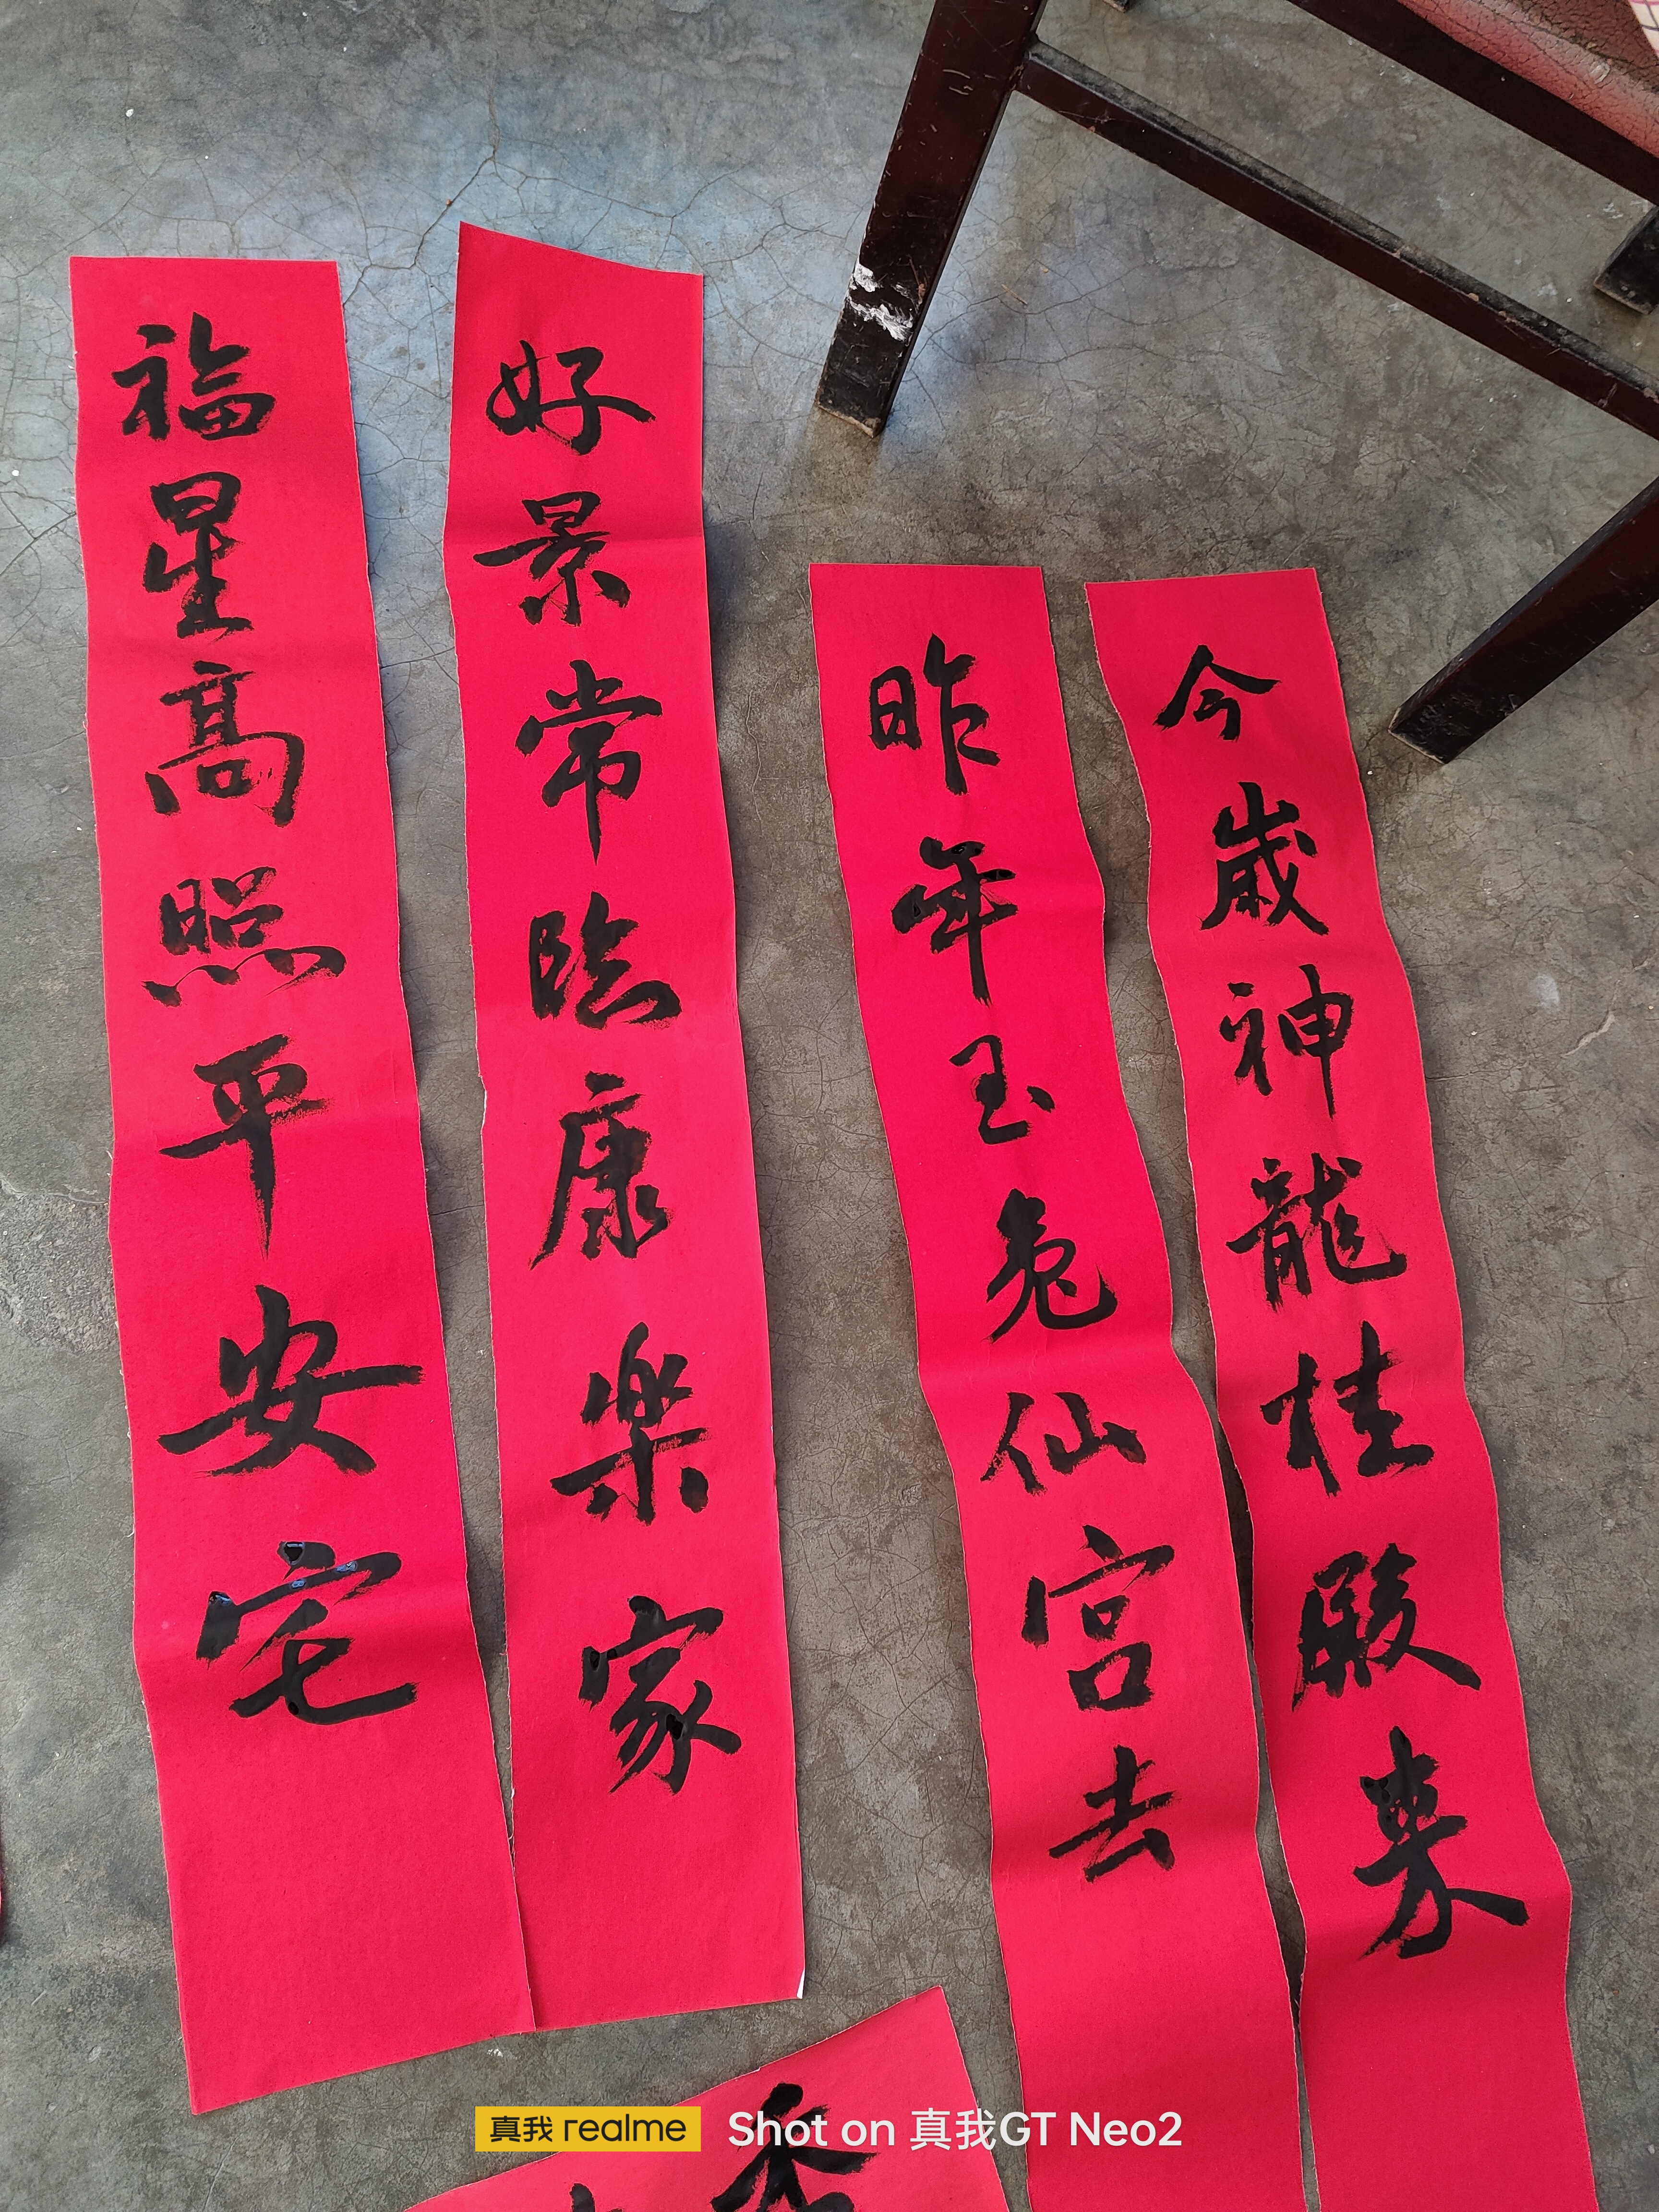 福星高照平安宅
好景常臨康樂家
昨年玉兔仙宫去
今歲神龍桂殿来
香
真我 realme Shot on 真我GT Neo2